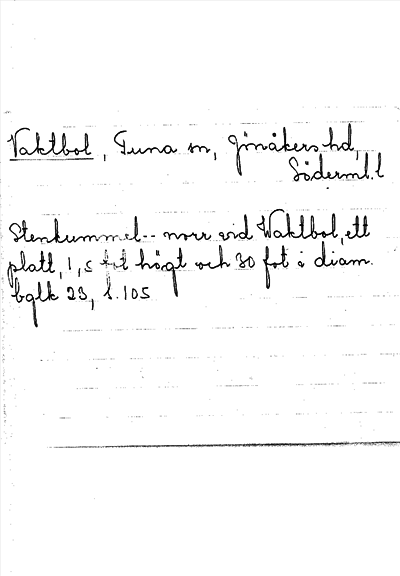 Vaktbol, Tuna sn, Jönåkers hd,
Söderml. l
Stenkummel -- norr vid Waktbol, ett
platt, 1,5 fot högt och 30 fot i diam.
bglk 23, s. 105